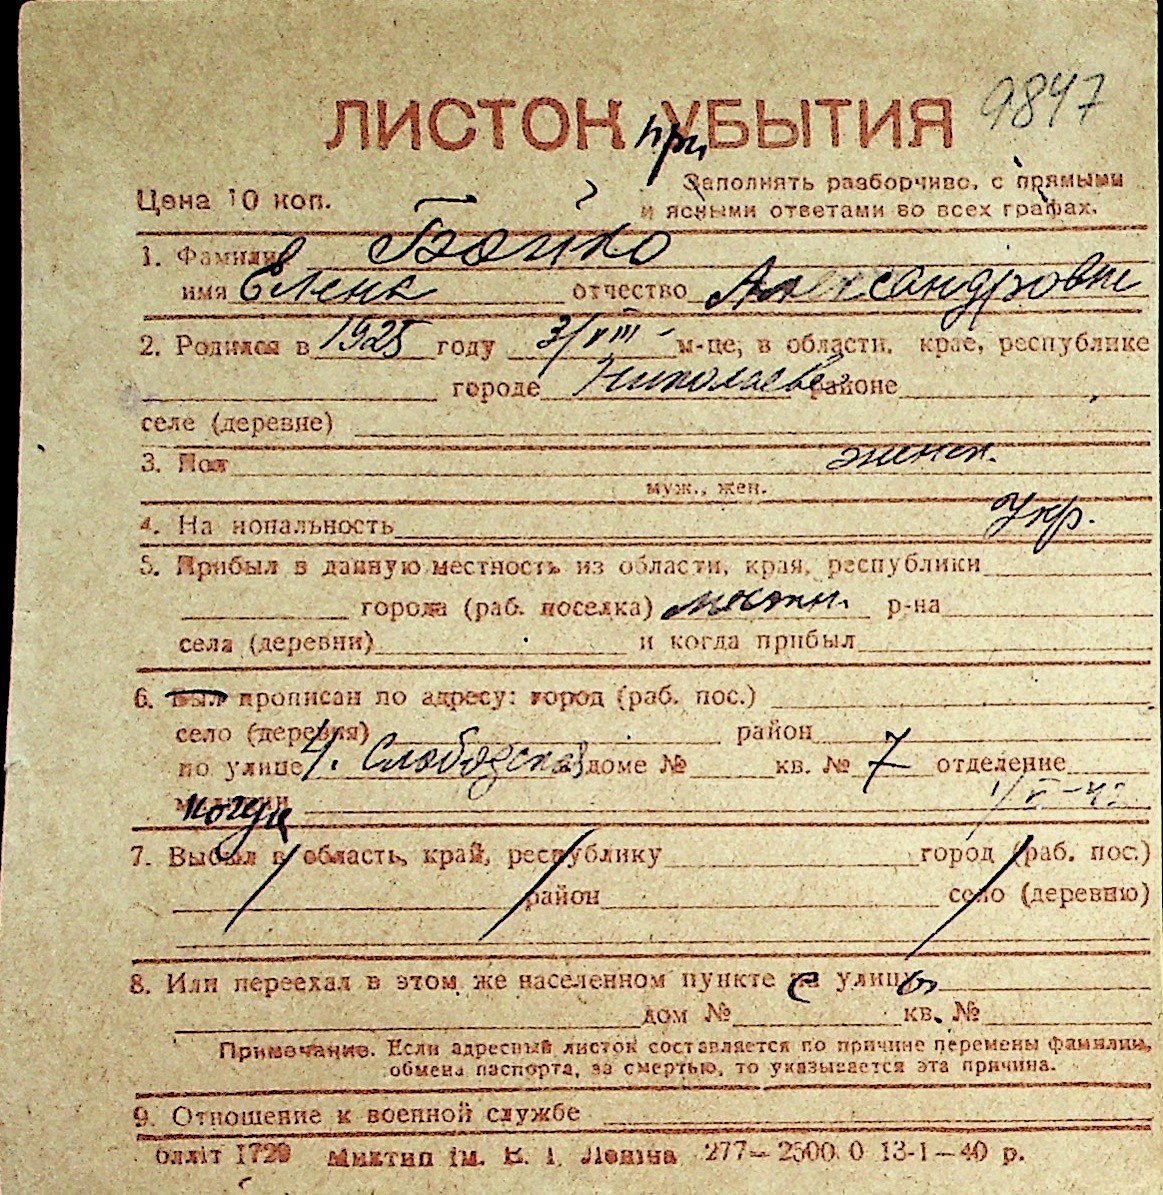 9847
ЛИСТОК при УБЫТИЯ
Цена 10 коп.
Заполнять разборчиво, с прямыми
и ясными ответами во всех графах.
1. Фамилия Бойко
имя Елена отчество Александровна
2. Родился в 1925 году 3/VIII - м-це, в области, крае, республике
городе Николаеве районе
селе (деревне)
3. Пол женск.
муж., жен.
4. Национальность Укр.
5. Прибыл в данную местность из области, края, республики
города (раб. поселка) местн. р-на
села (деревни) и когда прибыл
6. Был прописан по адресу: город (раб. пос.)
село (деревня) район
по улице 4. Слободская доме № кв. № 7 отделение
когда
7. Выбыл в область, край, республику город (раб. пос.)
район село (деревню)
8. Или переехал в этом же населенном пункте с улицы
дом № кв. №
Примечание. Если адресный листок составляется по причине перемены фамилии,
обмена паспорта, за смертью, то указывается эта причина.
9. Отношение к военной службе
блліт 1729 Миктип ім. В. І. Леніна 277—2500.0 13-1—40 р.